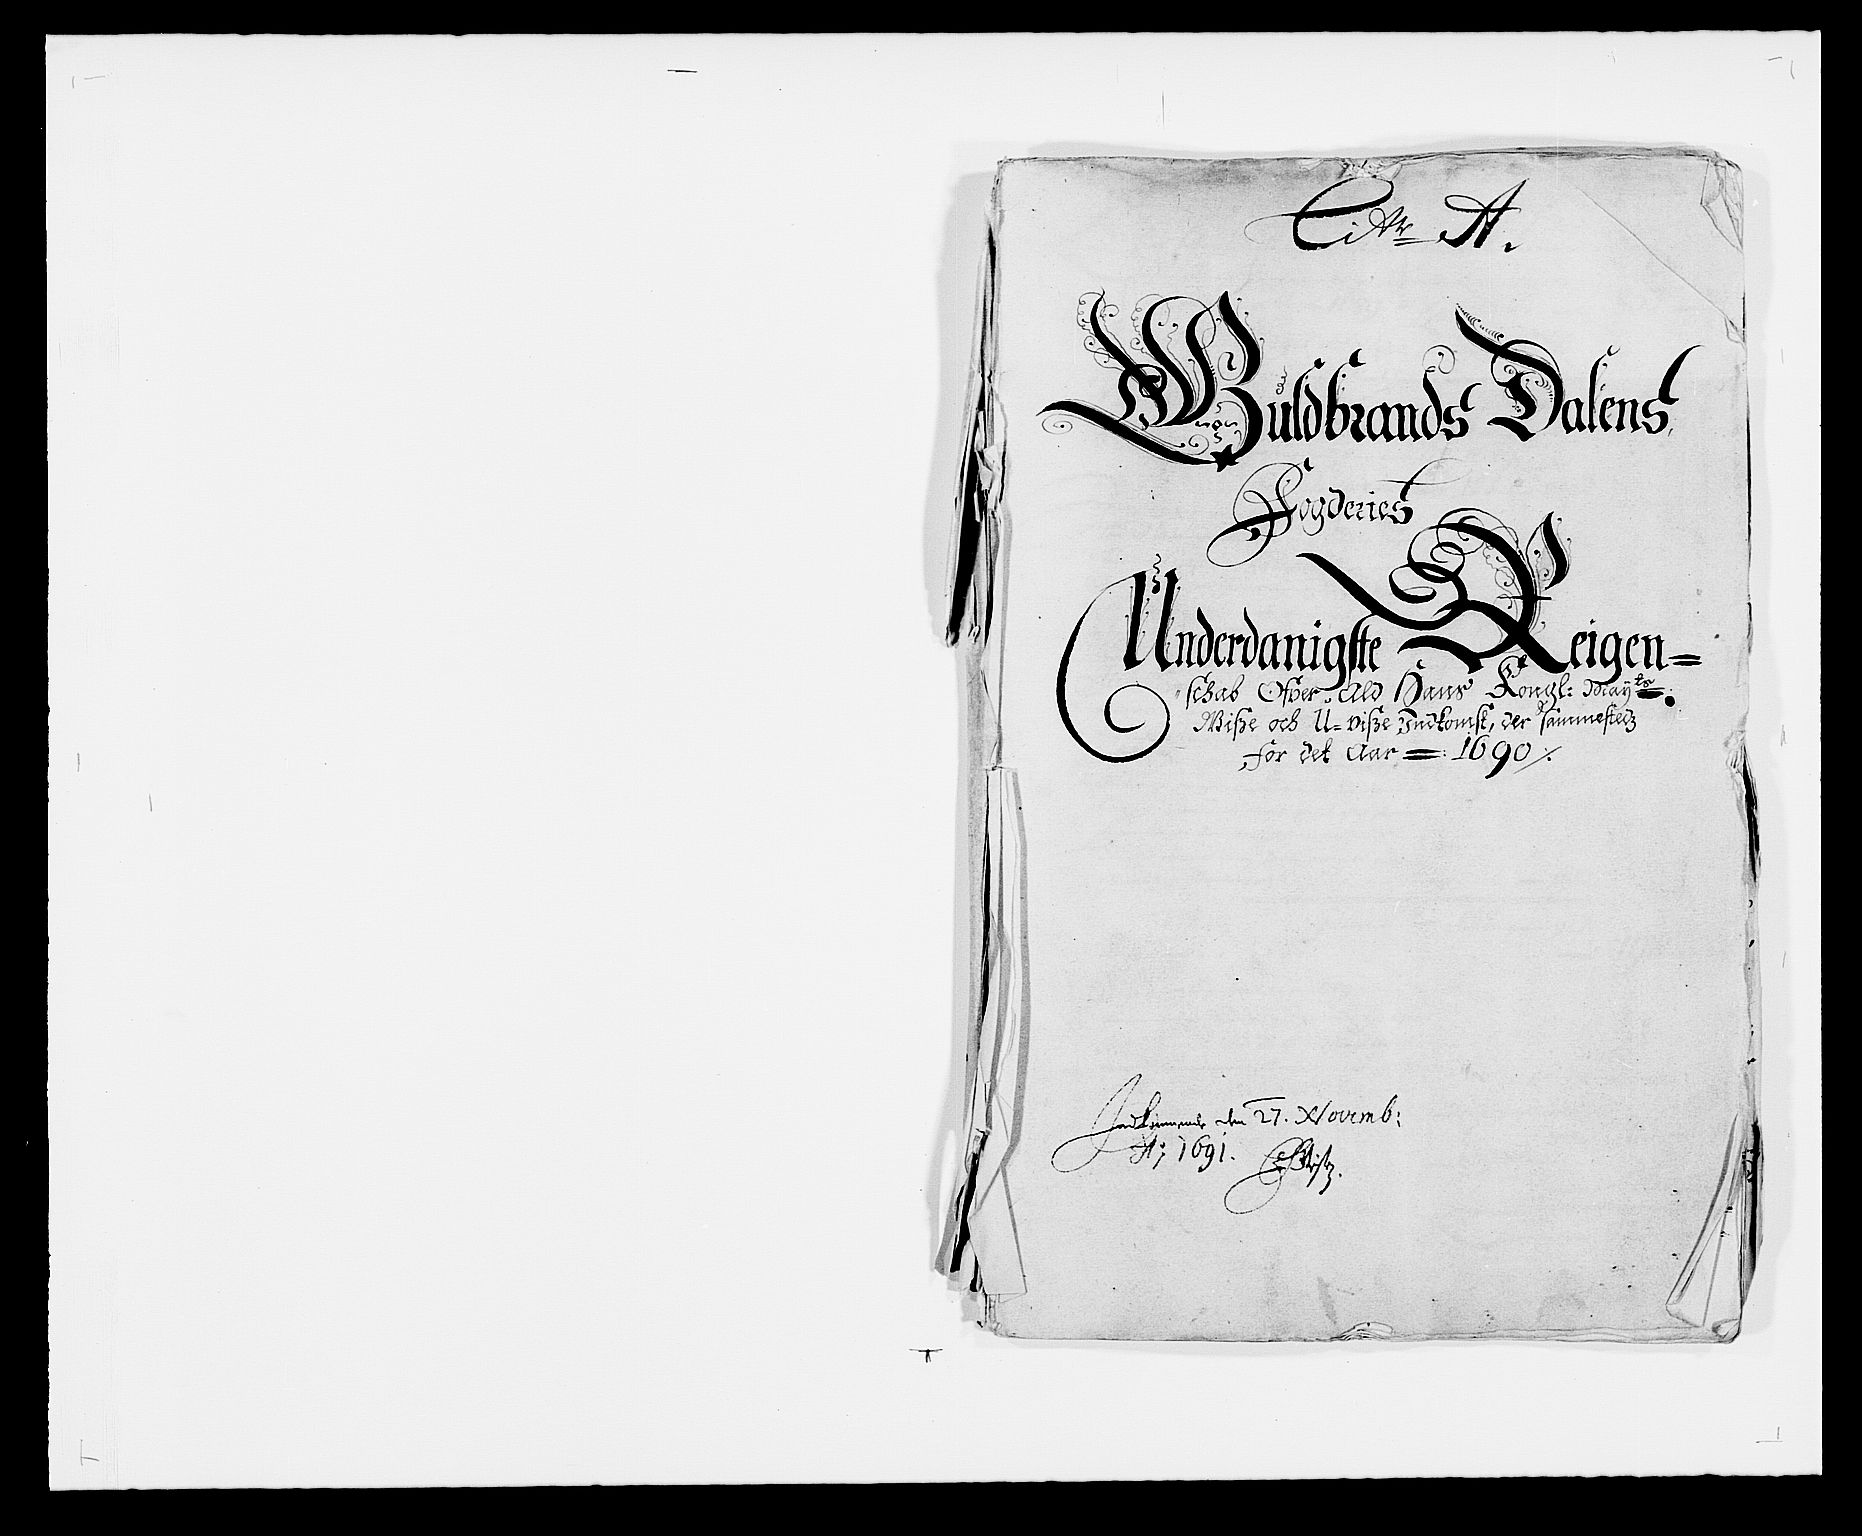 Litr A.
Guldbrands Dalens
Fogderies
Underdanigste Reigen=
schab Ofver Ald Hans Kongl: Mayts:
Wisse och U-visse Indkomst, der sammestedz
for det Aar = 1690 ./.
Indkommend den 27. Novemb:
A: 1691.